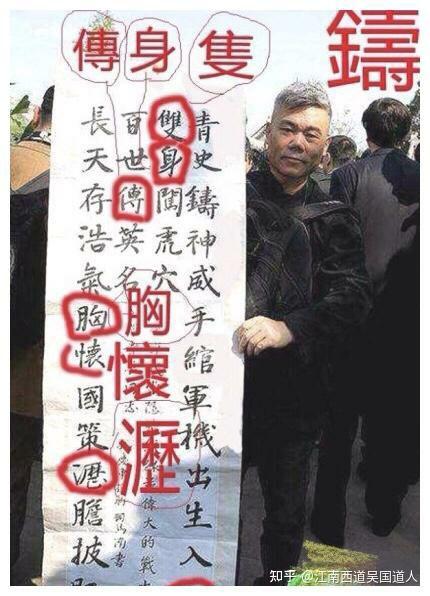 傳 身 隻 鑄
青史鑄神威手綰軍機出生入
雙身闖虎穴
百世傳英名
長天存浩氣胸懷國策瀝膽披
偉大的戰
司馬南書
胸
懷
瀝
知乎 @江南西道吴国道人